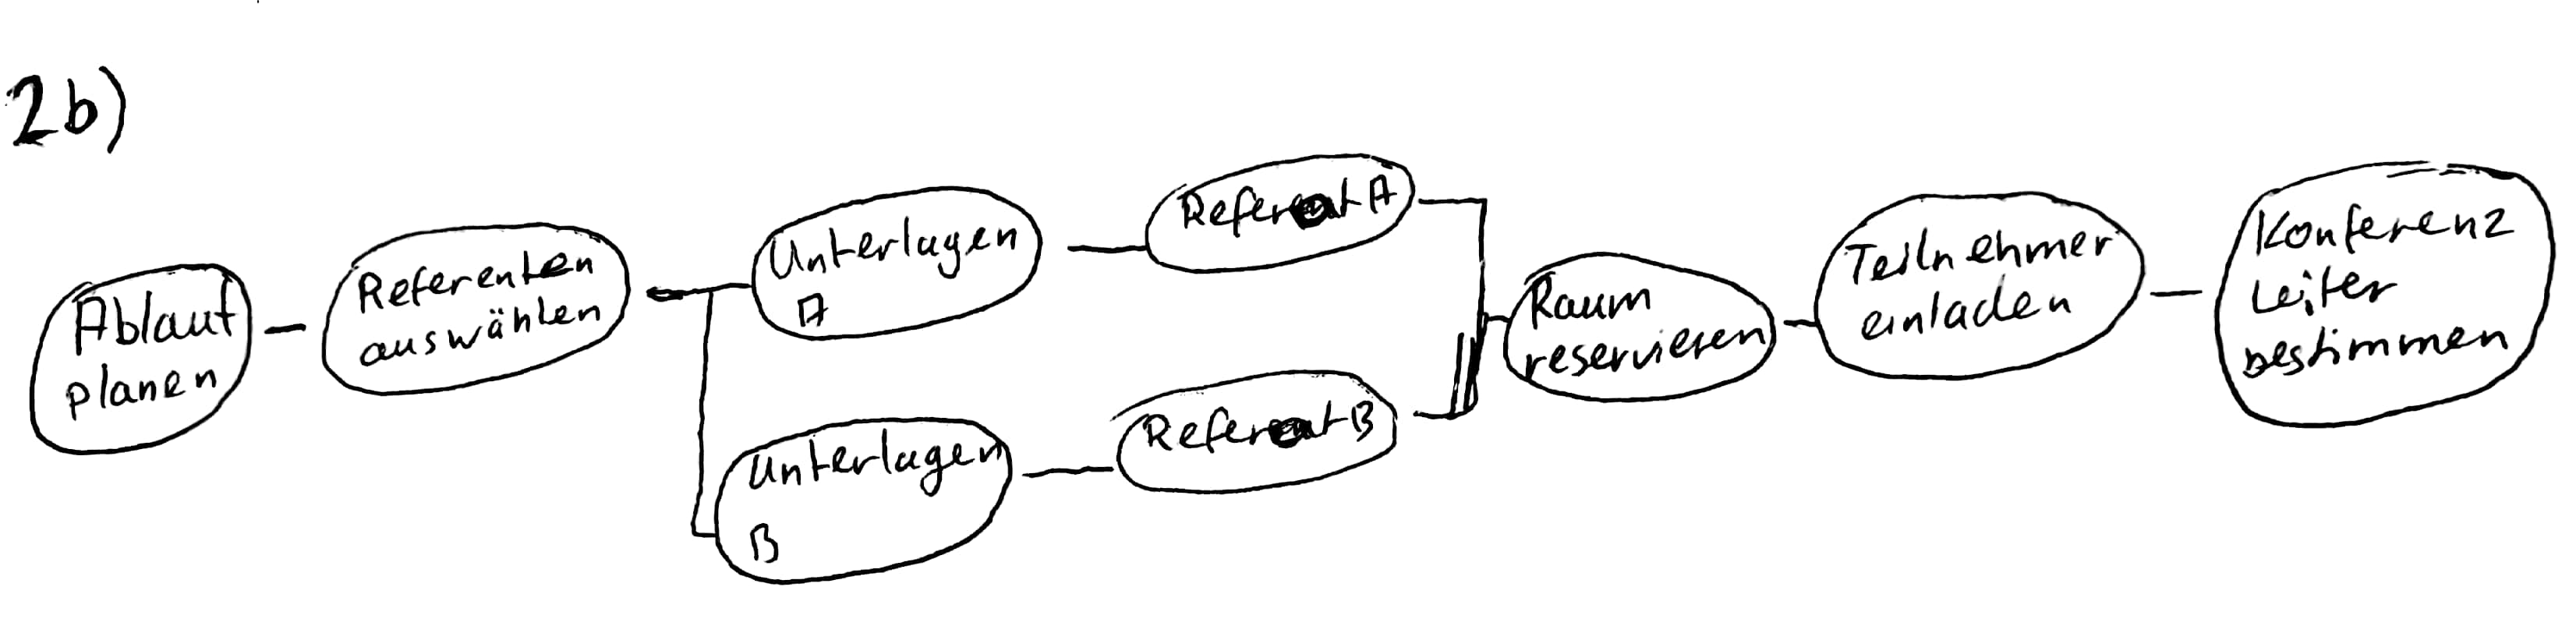 2b)
Ablauf
planen
Referenten
auswählen
Unterlagen
A
Referat A
Unterlagen
B
Referat B
Raum
reservieren
Teilnehmer
einladen
Konferenz
Leiter
bestimmen